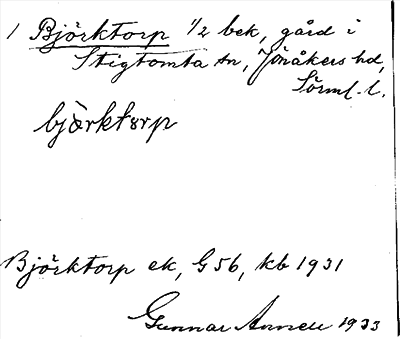 1 Björktorp 1/2 bek, gård i
Stigtomta sn, Jönåkers hd,
Sörml. l.
bjòrktorp
Björktorp ek, G 56, kb 1931
Gunnar 1933